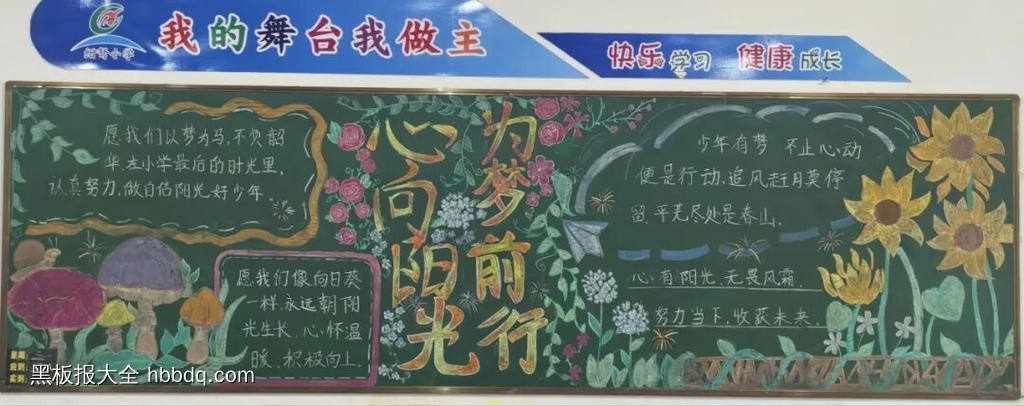 我的舞台我做主
快乐学习 健康成长
愿我们以梦为马,不欠韶
华.在小学最后的时光里,
认真努力,做自信阳光好少年.
愿我们像向日葵
一样,永远朝阳
光生长.心怀温
暖.积极向上.
心向阳光
为梦前行
少年有梦 不止心动
便是行动.追风赶月莫停
留,平芜尽处是春山.
心有阳光.无畏风霜.
努力当下,收获未来.
星期
应到
实到
黑板报大全 hbbdq.com